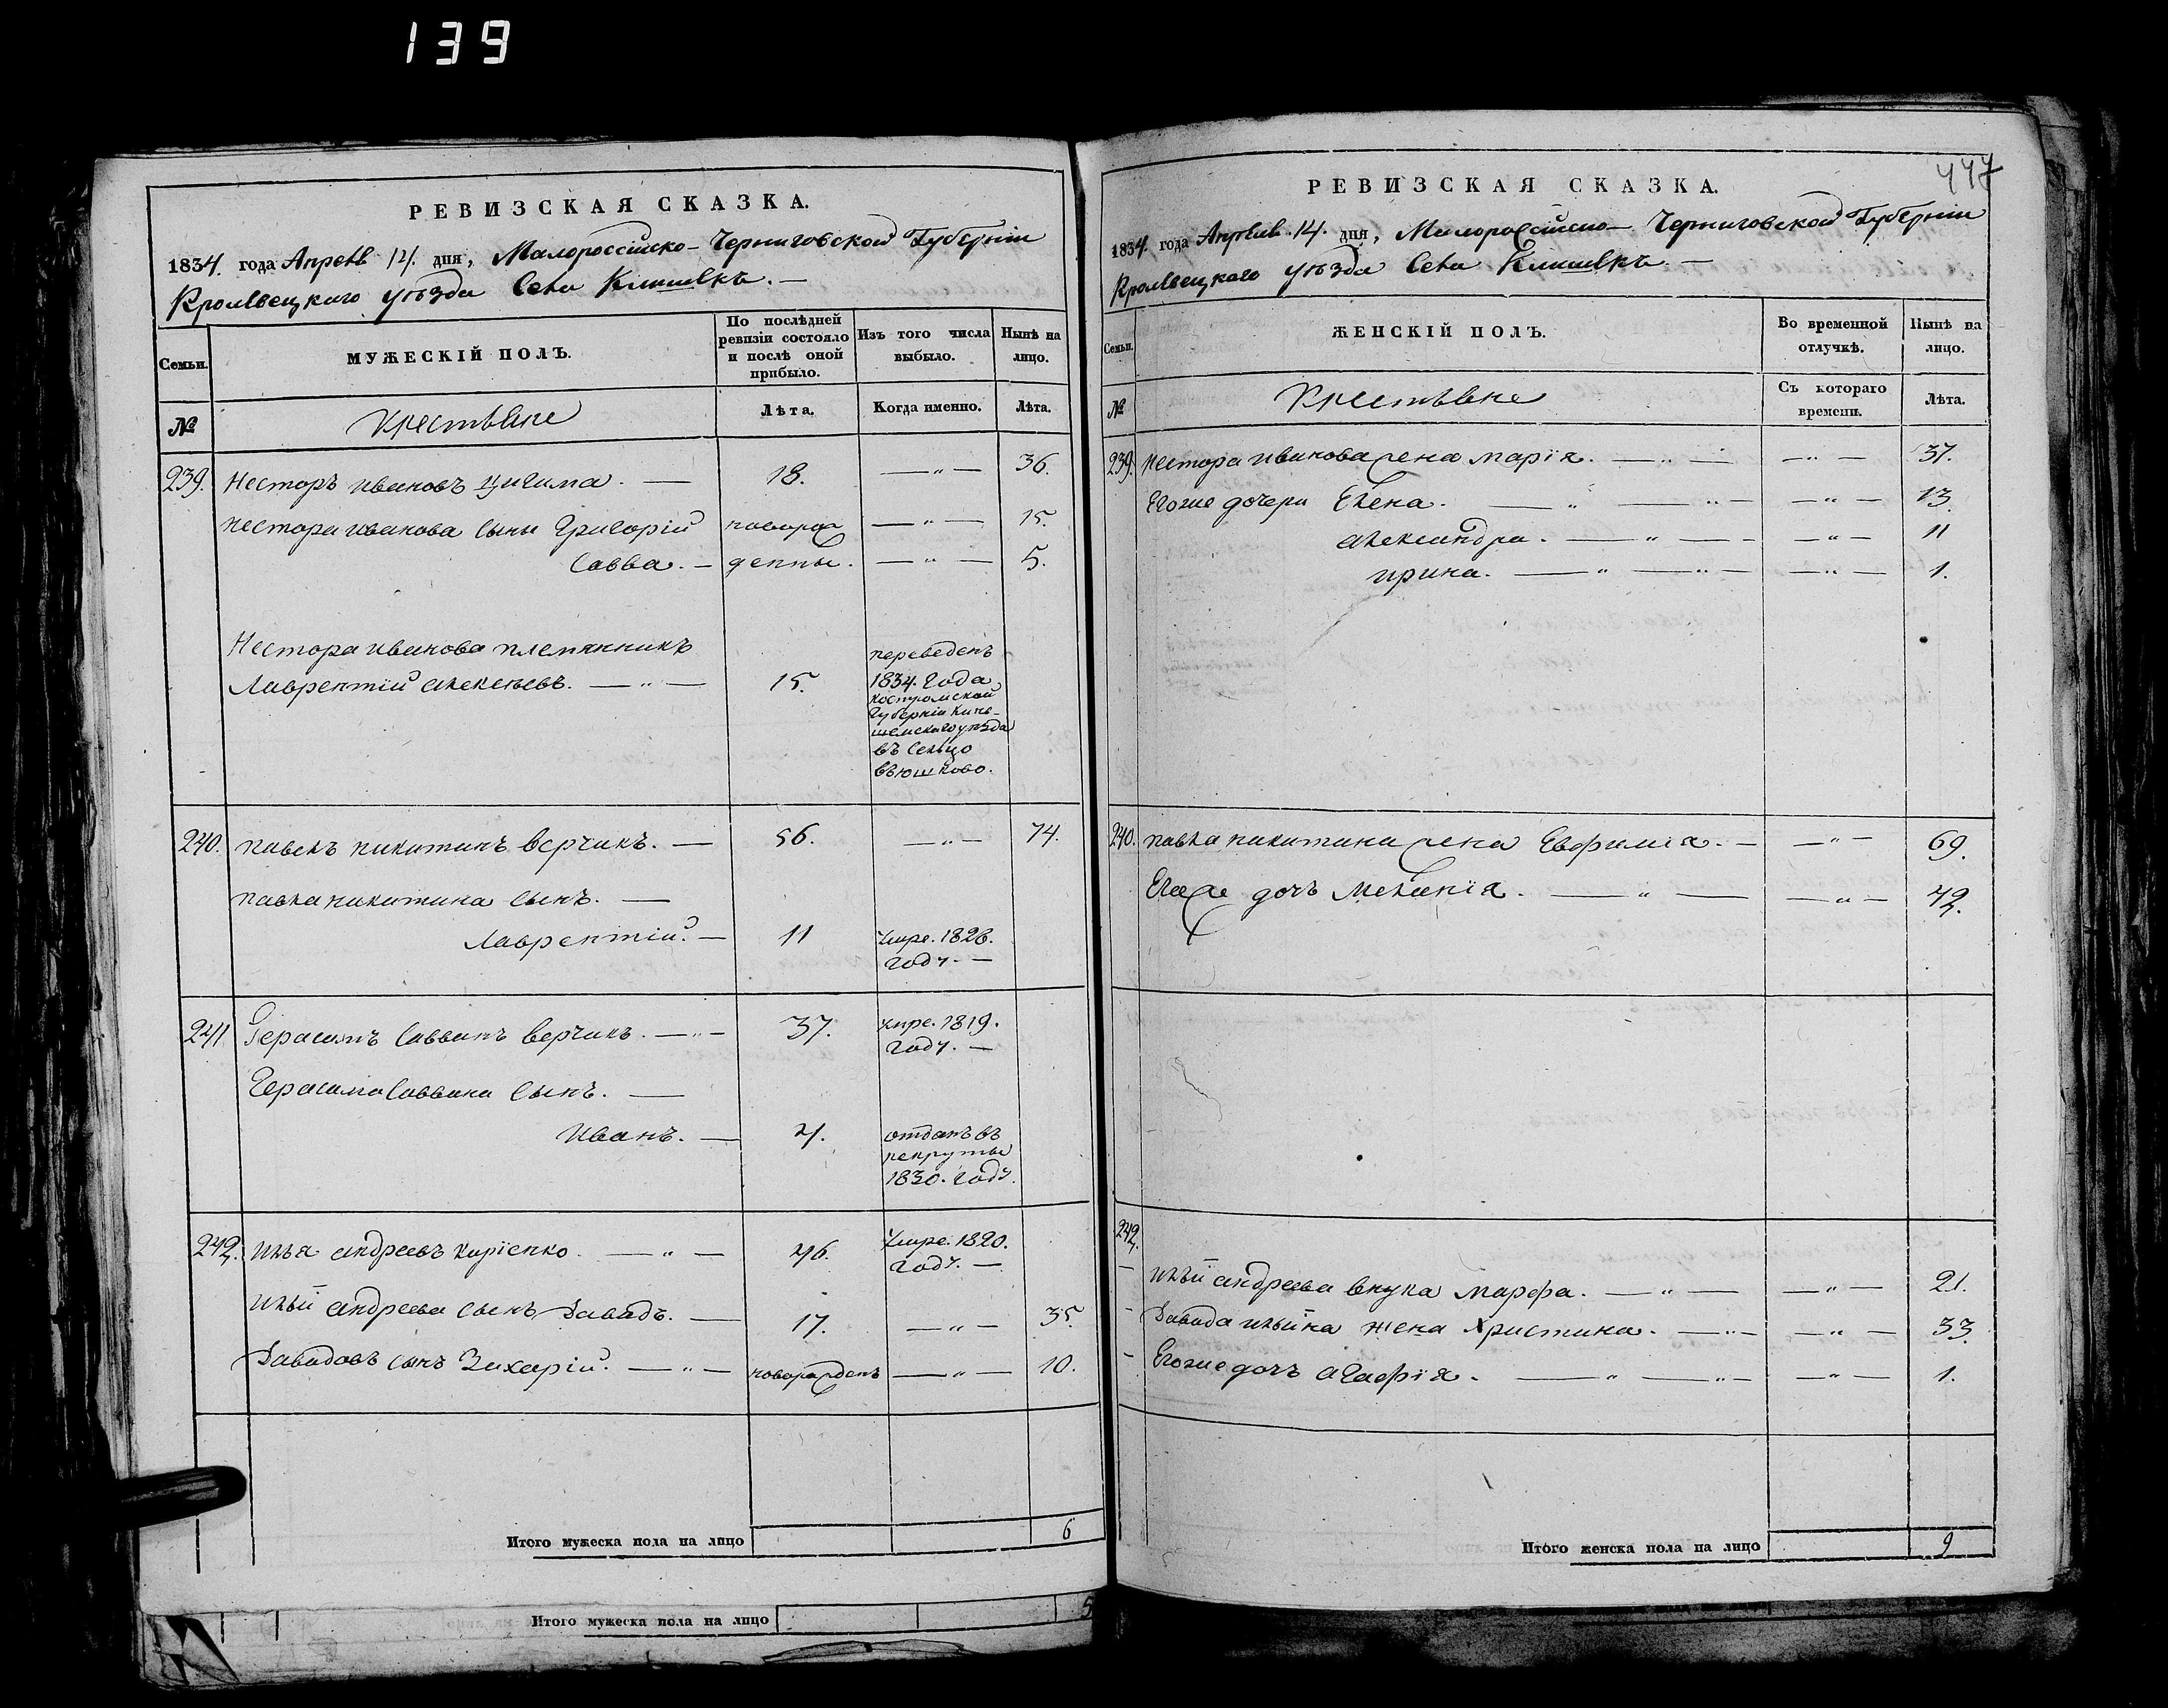 139
РЕВИЗСКАЯ СКАЗКА.
1834. года Апреля 14. дня, Малороссійско-Черниговской Губерніи
Кролевецкаго уѣзда Села Клишекъ. —
Семьи.
МУЖЕСКІЙ ПОЛЪ.
По послѣдней ревизіи состояло и послѣ оной прибыло.
Изъ того числа выбыло.
Нынѣ на лицо.
№
Крестьяне
Лѣта.
Когда именно.
Лѣта.
239. Несторъ Ивановъ Цигима. — 18. — „ — 36.
Нестора Иванова сыны Григорій новорож — „ — 15.
Савва. — денны. — „ — 5.
Нестора Иванова племянникъ
Лаврентій Алексѣевъ. — „ — 15.
переведенъ
1834. года
Костромской
Губерніи Кине-
шемскаго уѣзда
въ сельцо
Вьюшково.
240. Павелъ Никитинъ Верчикъ. — 56. — „ — 74.
Павла Никитина сынъ. —
Лаврентій. — 11 умре. 1826.
году. —
241. Герасимъ Саввинъ Верчикъ. — „ — 37. умре. 1819.
году. —
Герасима Саввина сынъ. —
Иванъ. — 4. отданъ въ
рекруты
1830. году.
242. Илья Андреевъ Киріенко. — „ — 46. умре. 1820.
году. —
Ильи Андреева сынъ Давидъ. — 17. — „ — 35.
Давидовъ сынъ Захарій. — „ — новорожденъ — „ — 10.
Итого мужеска пола на лицо 6
Итого мужеска пола на лицо 5
РЕВИЗСКАЯ СКАЗКА.
1834. года Апреля 14. дня, Малороссійско-Черниговской Губерніи
Кролевецкаго уѣзда Села Клишекъ. —
Семьи.
ЖЕНСКІЙ ПОЛЪ.
Во временной отлучкѣ.
Нынѣ на лицо.
№
Крестьяне
Съ котораго времени.
Лѣта.
239. Нестора Иванова жена Марія. — „ — — „ — 37.
Егоже дочери Елена. — „ — „ — — „ — 13
Александра. — „ — — „ — 11
Ирина. — „ — „ — — „ — 1.
240. Павла Никитина жена Евфимія. — — „ — 69.
Егоже дочь Меланія. — „ — — „ — 42.
242.
Ильи Андреева внука Марфа. — „ — — „ — 21.
Давида Ильина жена Христина. — „ — — „ — 33.
Егоже дочь Агафія. — „ — „ — — „ — 1.
Итого женска пола на лицо 9